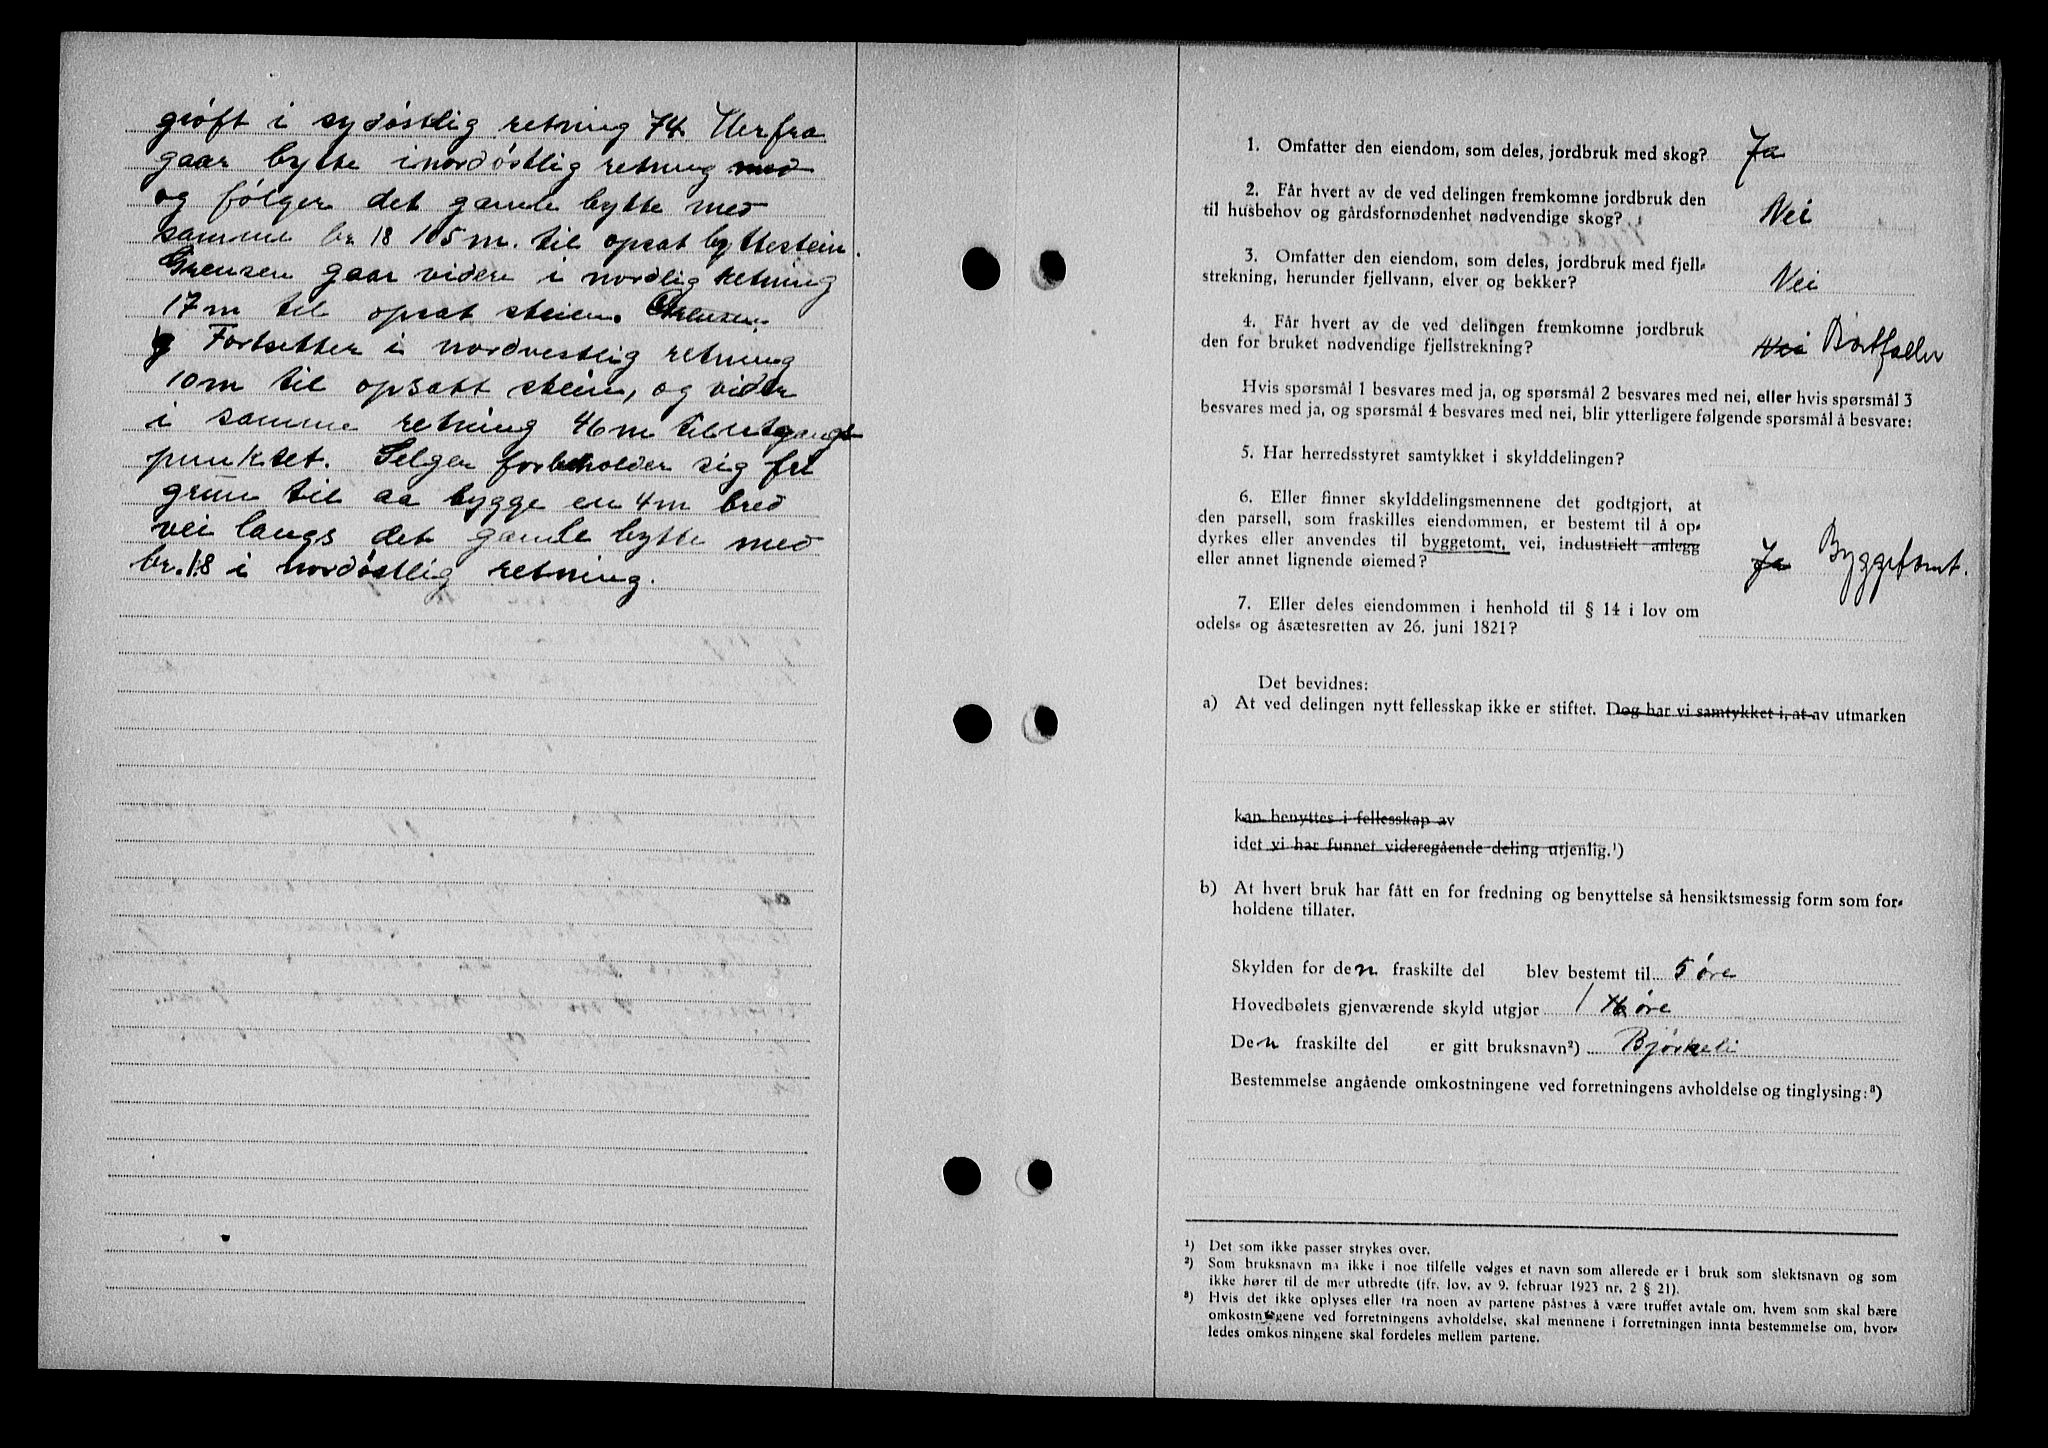 grøft i sydøstlig retning 74. Herfra
gaar bytte i nordøstlig retning med
og følger det gamle bytte med
samme br 18 105 m. til opsat byttestein.
Grensen gaar videre i nordlig retning
17 m til opsat steien. Grensen
Fortsetter i nordvestlig retning
10 m til opsatt stein, og vider
i samme retning 46 m til utgangs
punktet. Selger forbeholder sig fri
grun til aa bygge en 4 m bred
vei langs det gamle bytte med
br. 18 i nordøstlig retning.
1. Omfatter den eiendom, som deles, jordbruk med skog? Ja
2. Får hvert av de ved delingen fremkomne jordbruk den
til husbehov og gårdsfornødenhet nødvendige skog? Nei
3. Omfatter den eiendom, som deles, jordbruk med fjell-
strekning, herunder fjellvann, elver og bekker? Nei
4. Får hvert av de ved delingen fremkomne jordbruk
den for bruket nødvendige fjellstrekning? Nei Bortfaller
Hvis spørsmål 1 besvares med ja, og spørsmål 2 besvares med nei, eller hvis spørsmål 3
besvares med ja, og spørsmål 4 besvares med nei, blir ytterligere følgende spørsmål å besvare:
5. Har herredsstyret samtykket i skylddelingen?
6. Eller finner skylddelingsmennene det godtgjort, at
den parsell, som fraskilles eiendommen, er bestemt til å op-
dyrkes eller anvendes til byggetomt, vei, industrielt anlegg
eller annet lignende øiemed? Ja Byggetomt.
7. Eller deles eiendommen i henhold til § 14 i lov om
odels- og åsætesretten av 26. juni 1821?
Det bevidnes:
a) At ved delingen nytt fellesskap ikke er stiftet. Dog har vi samtykket i, at av utmarken
kan benyttes i fellesskap av
idet vi har funnet videregående deling utjenlig.¹)
b) At hvert bruk har fått en for fredning og benyttelse så hensiktsmessig form som for-
holdene tillater.
Skylden for den fraskilte del blev bestemt til 5 øre
Hovedbølets gjenværende skyld utgjør øre
Den fraskilte del er gitt bruksnavn²) Bjørkeli
Bestemmelse angående omkostningene ved forretningens avholdelse og tinglysing:³)
¹) Det som ikke passer strykes over.
²) Som bruksnavn ma ikke i noe tilfelle velges et navn som allerede er i bruk som slektsnavn og som
ikke hører til de mer utbredte (jfr. lov. av 9. februar 1923 nr. 2 § 21).
³) Hvis det ikke oplyses eller fra noen av partene påsties å være truffet avtale om, hvem som skal bære
omkostningene ved forretningens avholdelse, skal mennene i forretningen innta bestemmelse om, hvor-
ledes omkostningene skal fordeles mellem partene.